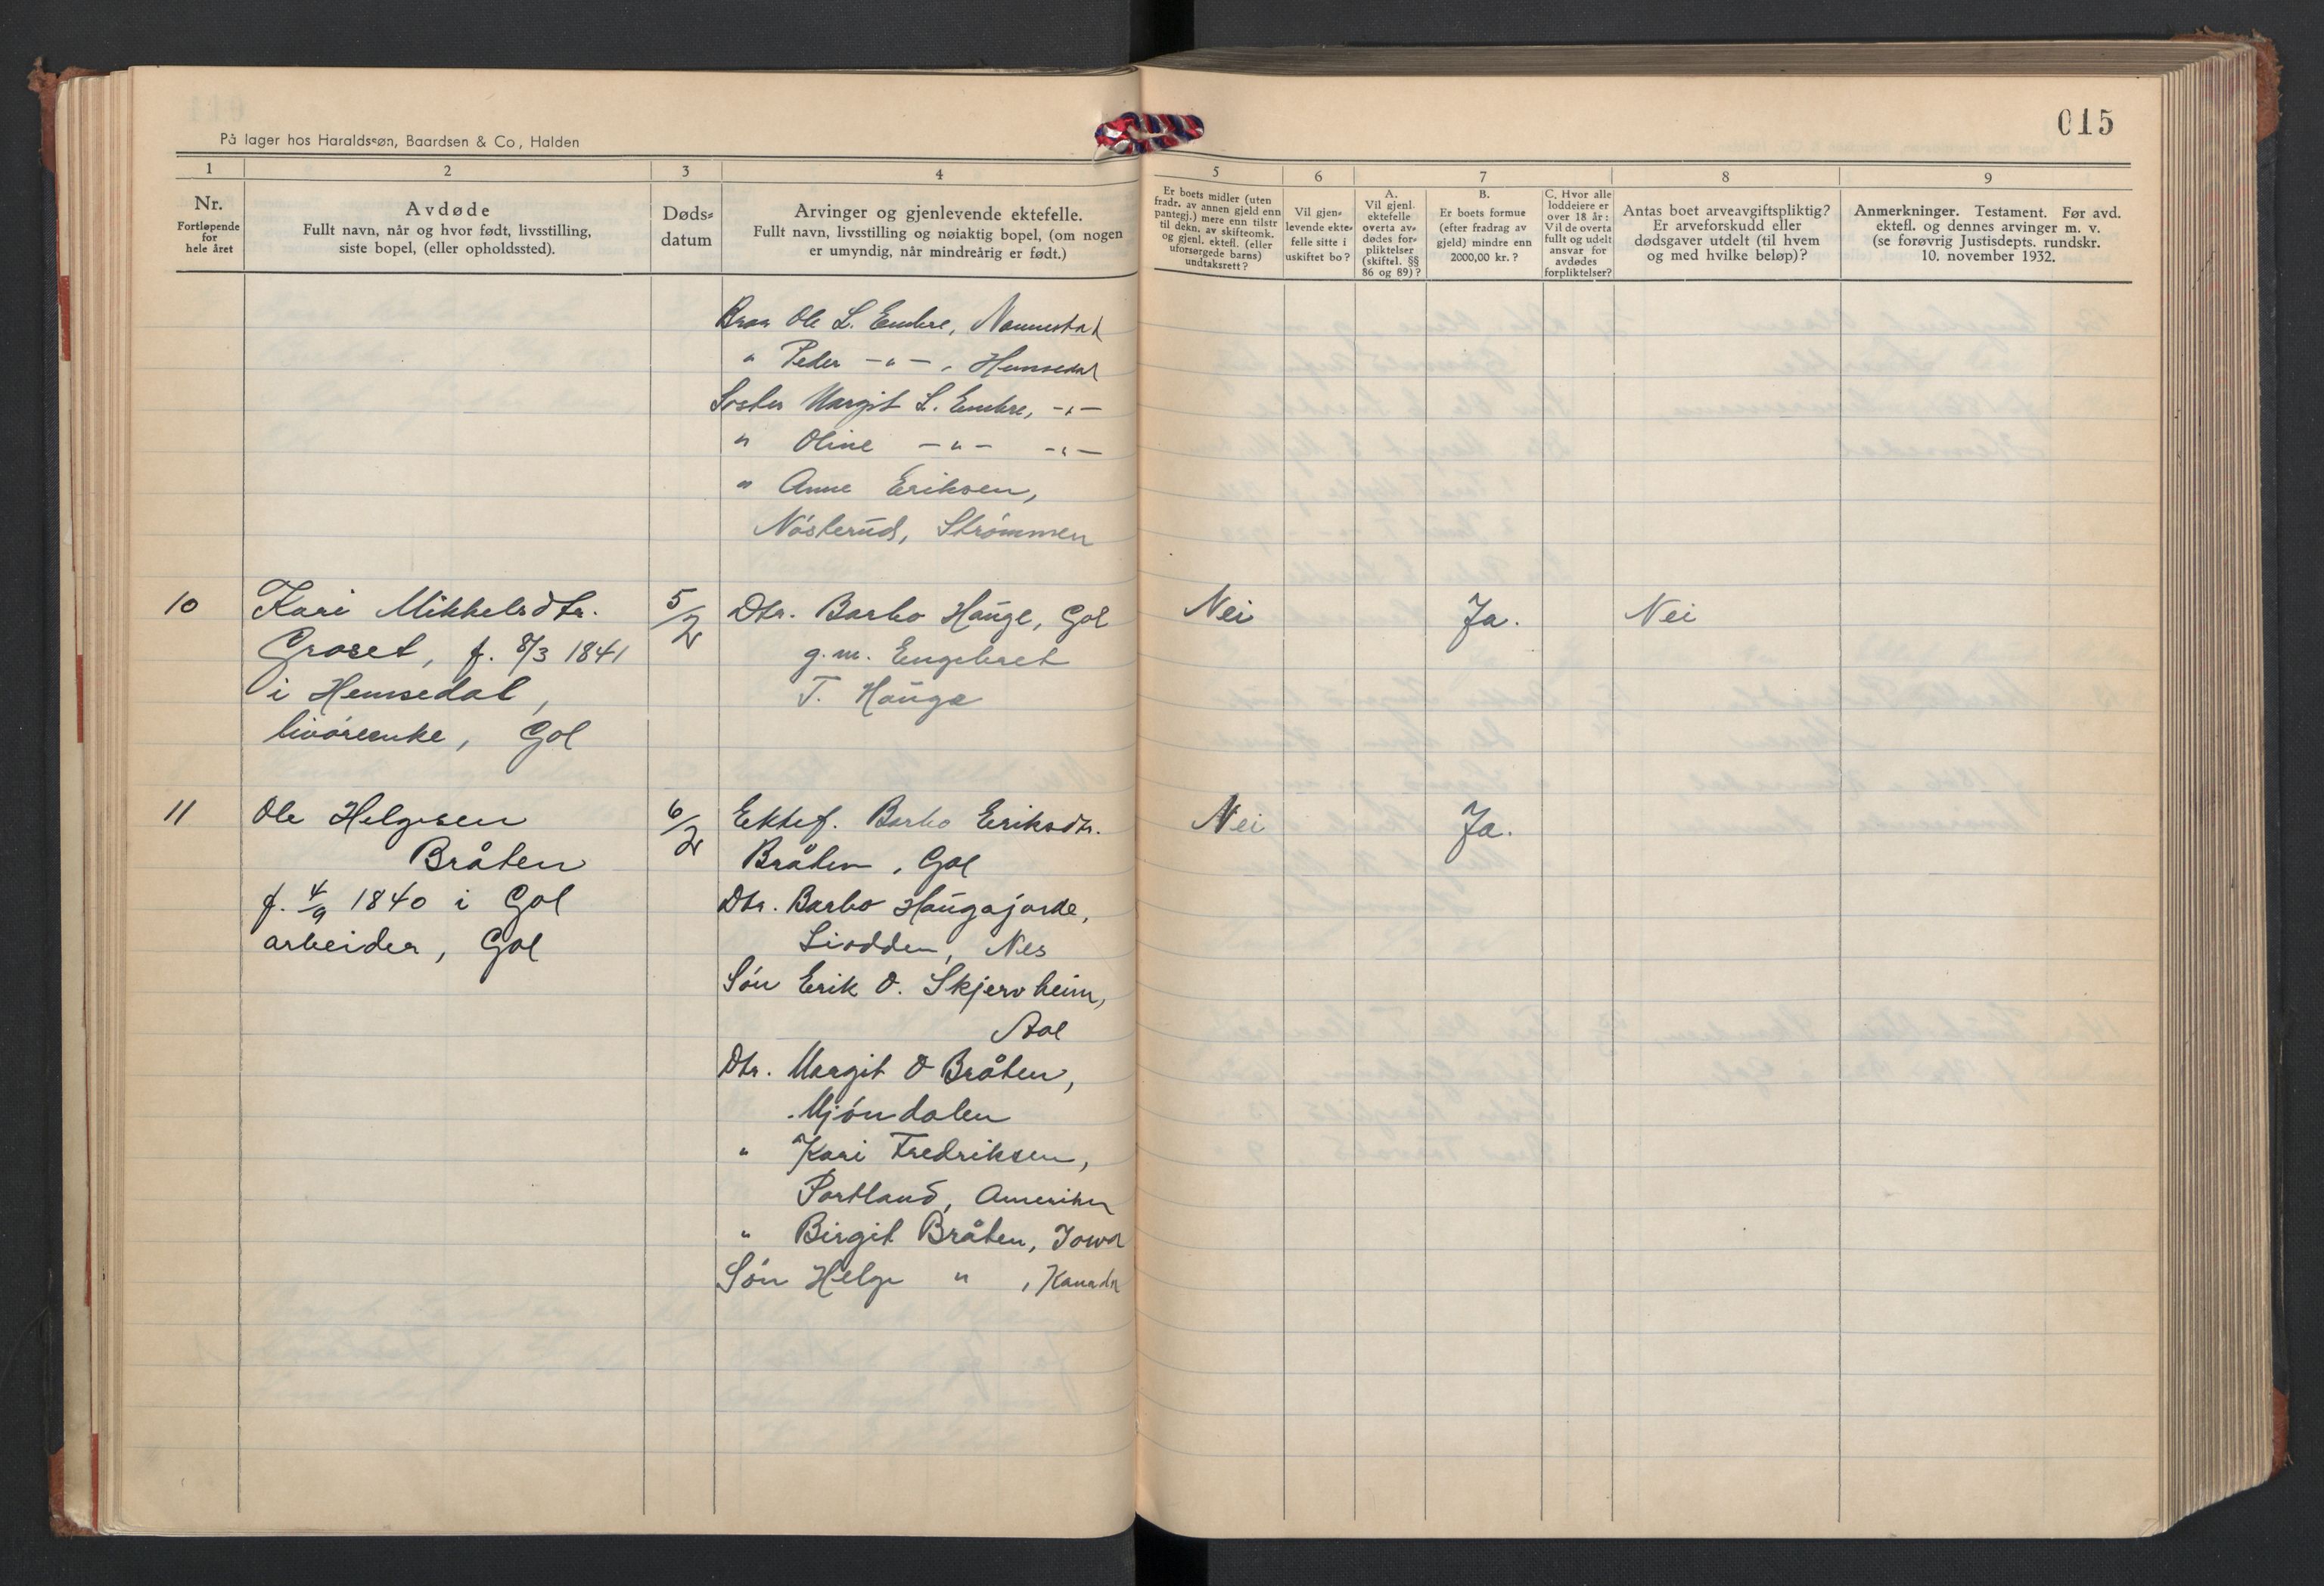 015
På lager hos Haraldssøn, Baardsen & Co, Halden
1 2 3 4 5 6 7 8 9
Nr.
Fortløpende
for
hele året
Avdøde
Fullt navn, når og hvor født, livsstilling,
siste bopel, (eller opholdssted).
Døds-
datum
Arvinger og gjenlevende ektefelle.
Fullt navn, livsstilling og nøiaktig bopel, (om nogen
er umyndig, når mindreårig er født.)
Er boets midler (uten
fradr. av annen gjeld enn
pantegj.) mere enn tilstr
til dekn. av skifteomk.
og gjenl. ektefl. (eller
uforsørgede barns)
undtaksrett?
Vil gjen-
levende ekte-
felle sitte i
uskiftet bo?
A.
Vil gjenl.
ektefelle
overta av-
dødes for-
pliktelser
(skiftel. §§
86 og 89)?
B.
Er boets formue
(efter fradrag av
gjeld) mindre enn
2000,00 kr.?
C. Hvor alle
loddeiere er
over 18 år:
Vil de overta
fullt og udelt
ansvar for
avdødes
forpliktelser?
Antas boet arveavgiftspliktig?
Er arveforskudd eller
dødsgaver utdelt (til hvem
og med hvilke beløp)?
Anmerkninger. Testament. Før avd.
ektefl. og dennes arvinger m. v.
(se forøvrig Justisdepts. rundskr.
10. november 1932.
Ole L. Embre, Nannestad
" Peder -"- , Hemsedal
Søster Margit L. Embre, -"-
" Oline -"- -"-
" Anne Eriksen,
Nøsterud, Strømmen
10 Kari Mikkelsdtr. 5/2 Dtr. Barbo Hauge, Gol Nei Ja. Nei
Groset, f. 8/3 1841 g.m. Engebret
i Hemsedal, T. Hauga
livøreenke, Gol
11 Ole Helgesen 6/2 Ektef. Barbo Eriksdtr. Nei Ja.
Bråten Bråten, Gol
f. 4/9 1840 i Gol Dtr. Barbo Haugajorde,
arbeider, Gol Liodden, Nes
Søn Erik O. Skjervheim,
Aal
Dtr. Margit O Bråten,
Mjøndalen
" Kari Fredriksen,
Portland, Amerika
" Birgit Bråten, Iowa
Søn Helge " , Kanada